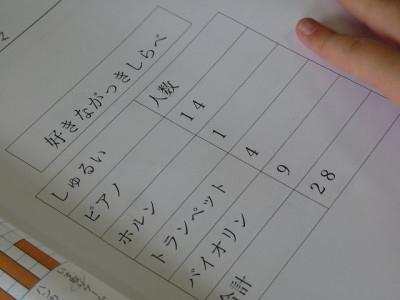 好きながっきしらべ
しゅるい 人数
ピアノ 14
ホルン 1
トランペット 4
バイオリン 9
合計 28
2